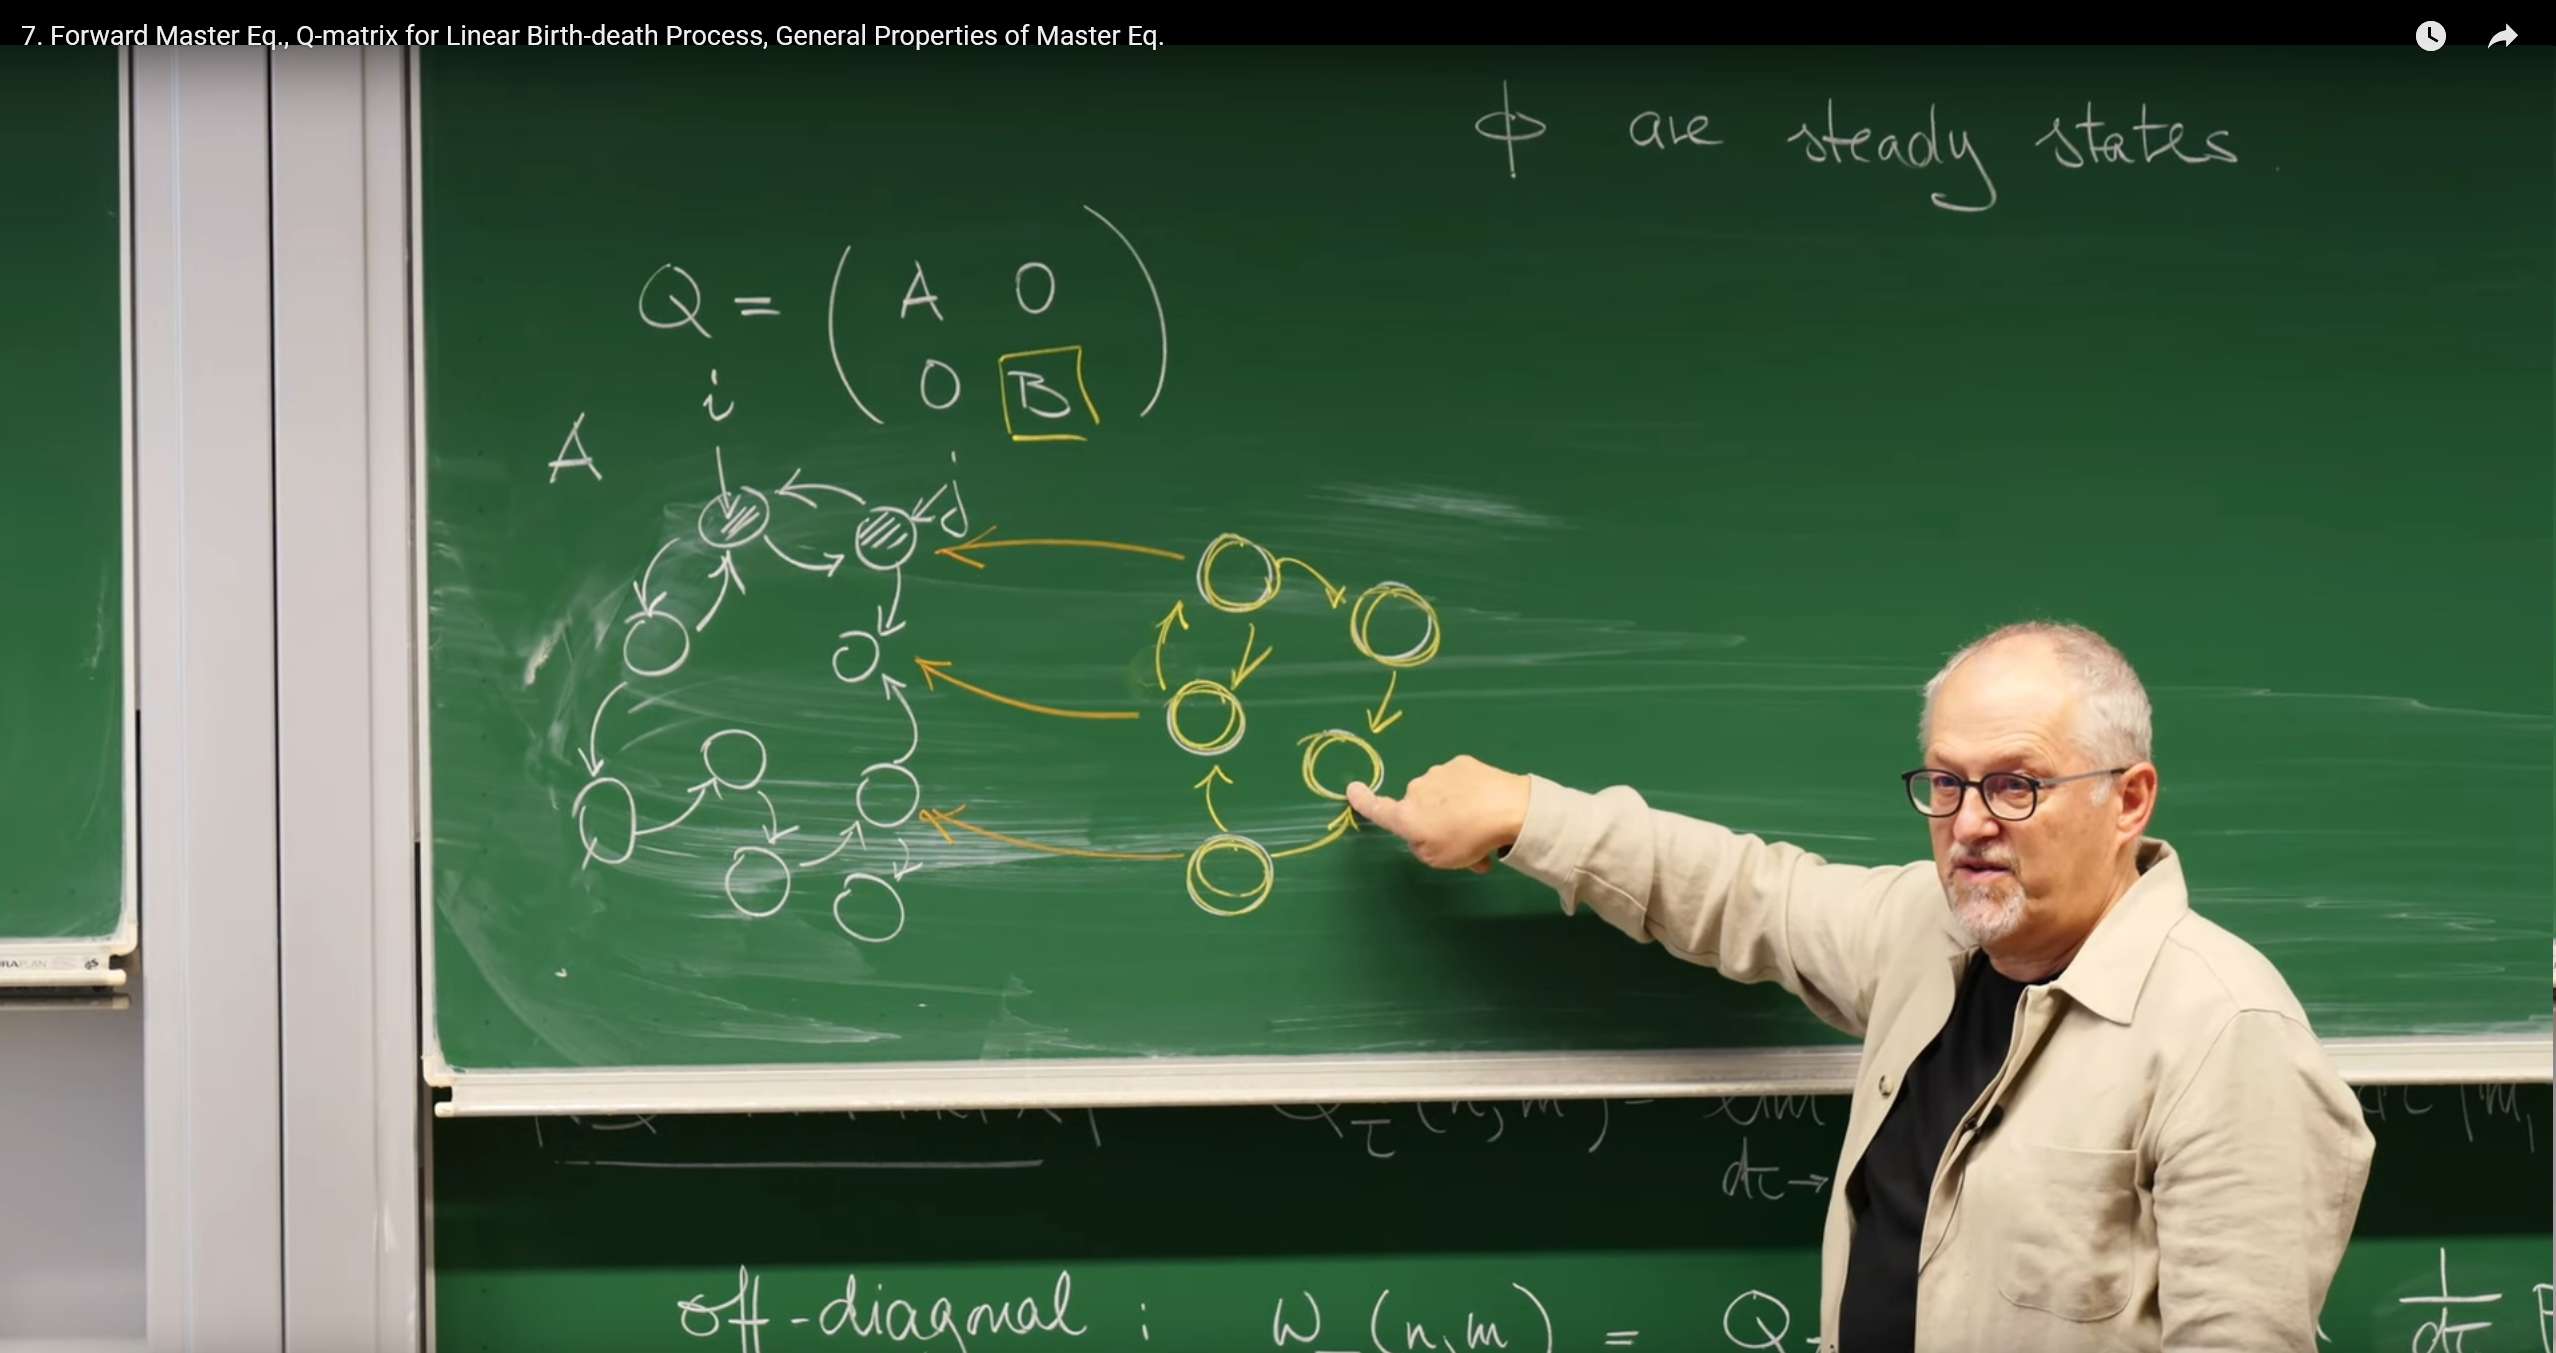 7. Forward Master Eq., Q-matrix for Linear Birth-death Process, General Properties of Master Eq.
ϕ are steady states.
Q = ( A 0
0 B )
i
A
j
Q_τ (n, m) = lim
dτ→
off-diagonal : W_ (n, m) = Q
1
dτ